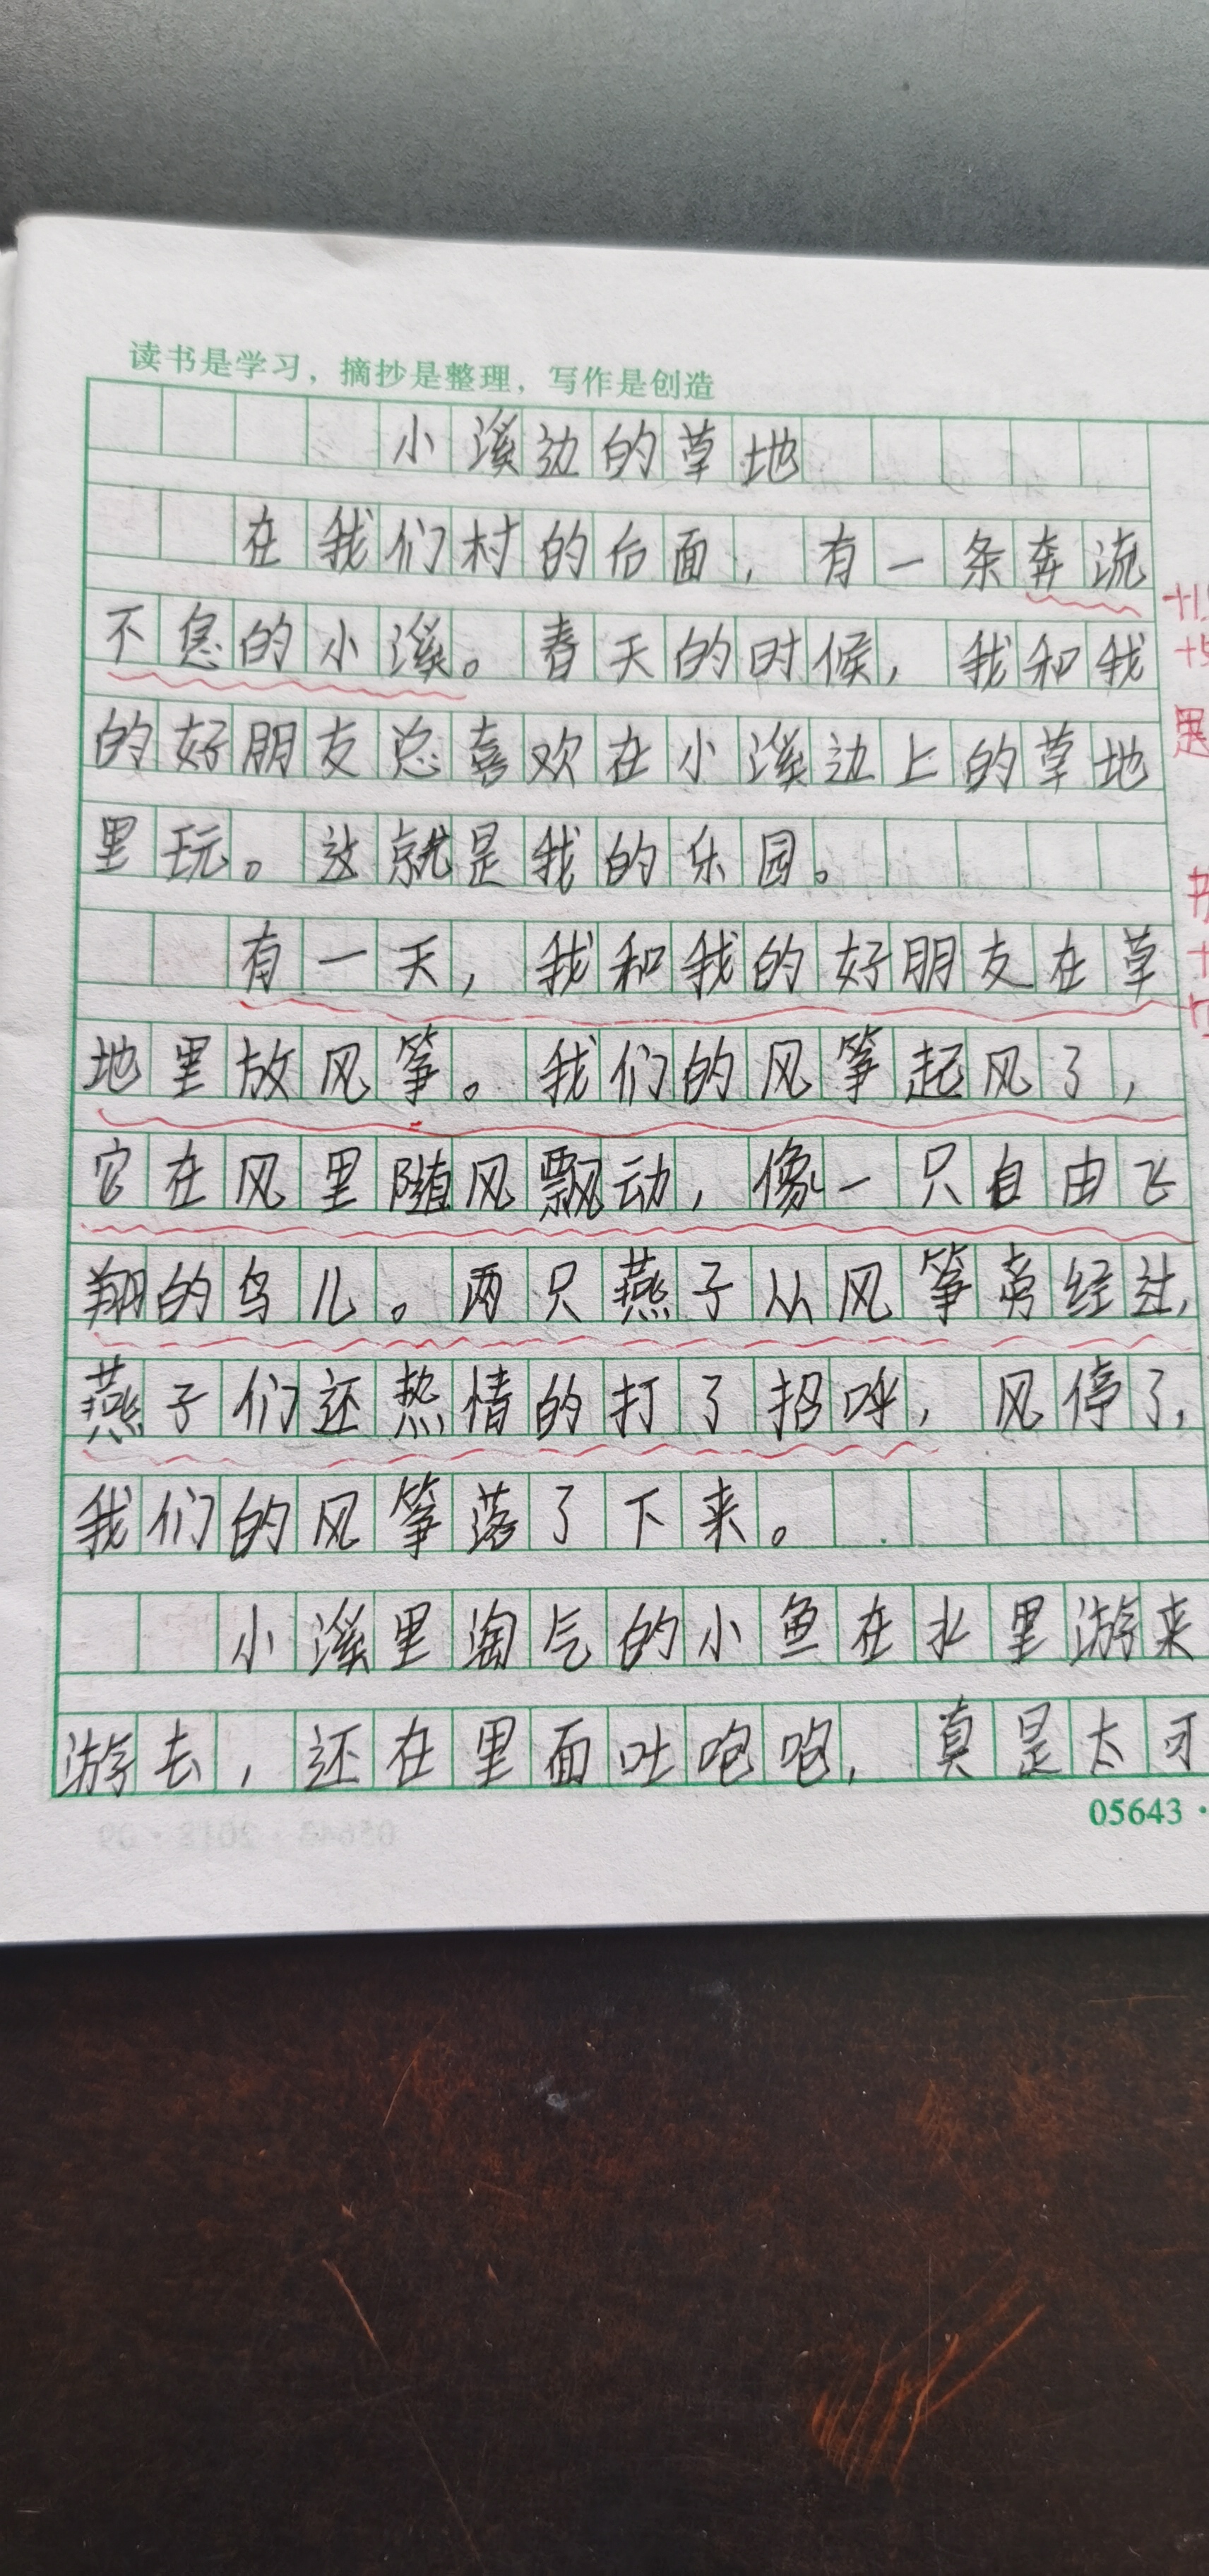 读书是学习，摘抄是整理，写作是创造
小溪边的草地
在我们村的后面，有一条奔流
不息的小溪。春天的时候，我和我
的好朋友总喜欢在小溪边上的草地
里玩。这就是我的乐园。
有一天，我和我的好朋友在草
地里放风筝。我们的风筝起风了，
它在风里随风飘动，像一只自由飞
翔的鸟儿。两只燕子从风筝旁经过，
燕子们还热情的打了招呼，风停了，
我们的风筝落了下来。
小溪里淘气的小鱼在水里游来
游去，还在里面吐咆咆，真是太可
05643·